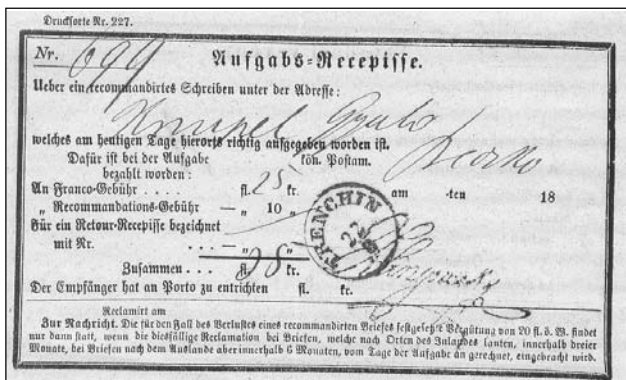 Drucksorte Nr. 227.
Nr. 699
Aufgabs-Recepisse.
Ueber ein recommandirtes Schreiben unter der Adresse:
welches am heutigen Tage hierorts richtig aufgegeben worden ist.
Dafür ist bei der Aufgabe kön. Postam.
bezahlt worden:
An Franco-Gebühr . . . . fl. 25 kr. am -ten 18
„ Recommandations-Gebühr — „ 10 „
Für ein Retour-Recepisse bezeichnet
mit Nr. . . . — „ „
TRENCHIN
Zusammen . . . fl. kr.
Der Empfänger hat an Porto zu entrichten fl. kr.
Reclamirt am
Zur Nachricht. Die für den Fall des Verlustes eines recommandirten Briefes festgesetzte Vergütung von 20 fl. ö. W. findet
nur dann statt, wenn die diesfällige Reclamation bei Briefen, welche nach Orten des Inlandes lauten, innerhalb dreier
Monate, bei Briefen nach dem Auslande aber innerhalb 6 Monaten, vom Tage der Aufgabe an gerechnet, eingebracht wird.